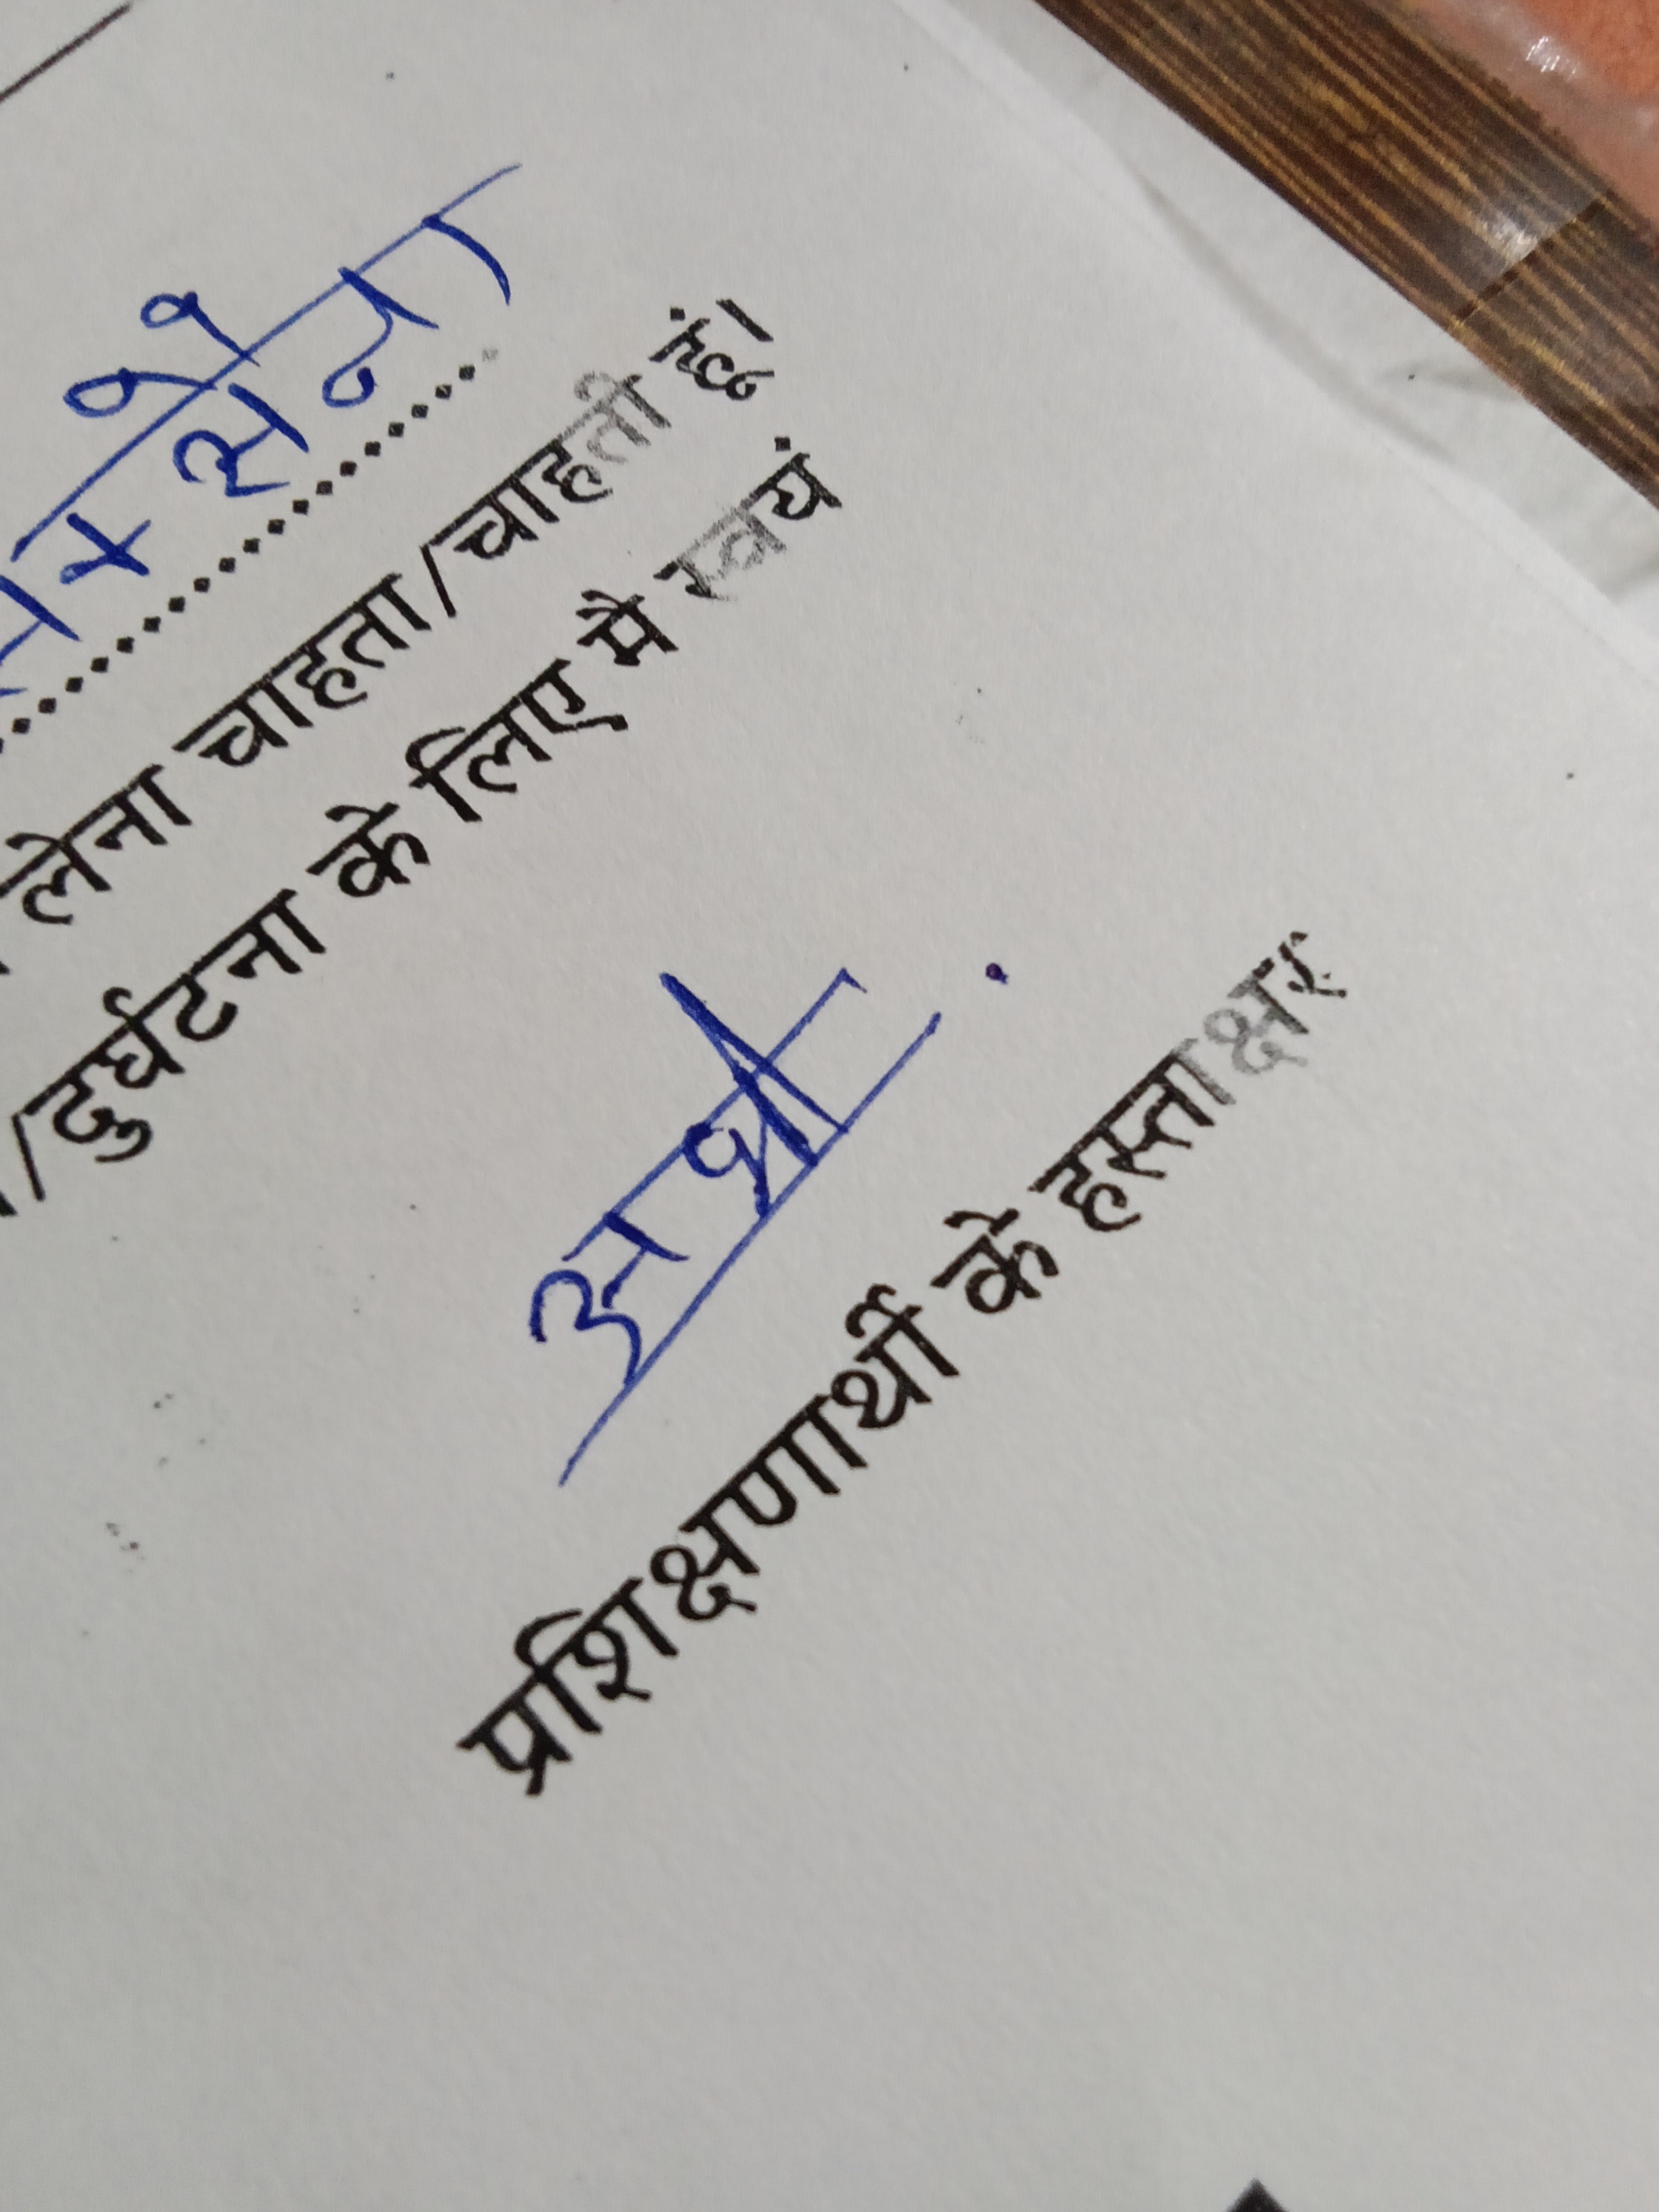 सक्सेना
लेना चाहता/चाहती हूं।
/दुर्घटना के लिए मैं स्वयं
प्रशिक्षणार्थी के हस्ताक्षर